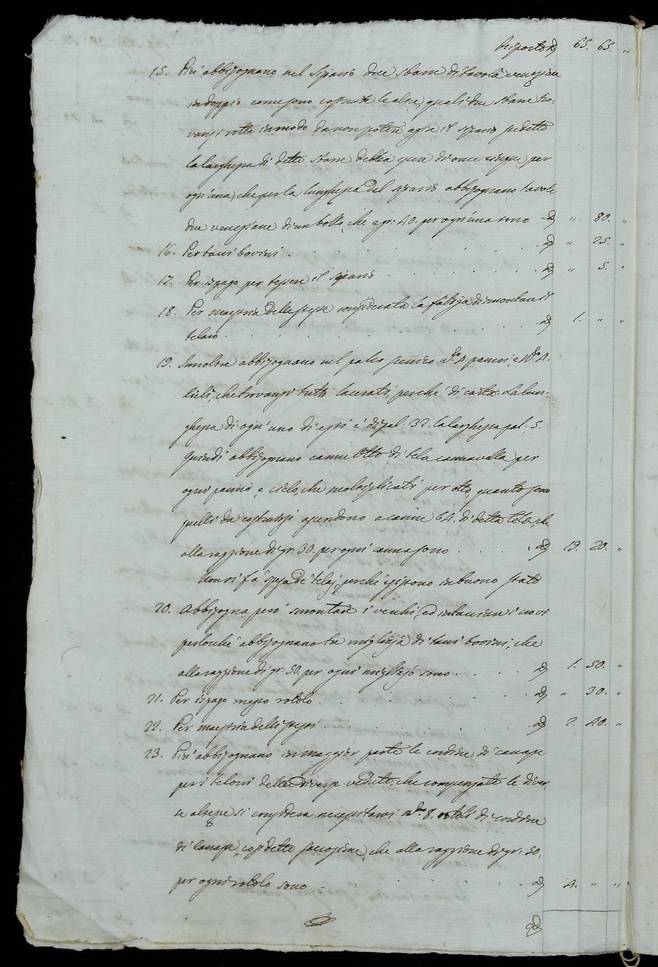 Riporto D. 65. 65. "
15. Più abbisognano nel sipario due sbarre di tavole veneziane
in doppio come sono costrutte le altre, quali due sbarre tro-
vansi rotte in modo da non potere agire il sipario sudetto
la larghezza di dette sbarre debbe essere di once cinque per
ogni una, che per la lunghezza del sipario abbisognano tavole
due veneziane di un bollo, che a gr. 40. per ogni una sono D. " 80. "
16. Per tacci bovini . D. " 25. "
17. Per spago per tessere il sipario D. " 5. "
18. Per maestria delle stesse considerata la fatiga di smontare il
telaro D. 1. " "
19. Inoltre abbisognano nel palco scenico N.o 4 panni, e N.o 4.
cieli, che trovansi tutti lacerati, perché di carta. La lun-
ghezza di ogni uno di essi è di pal. 32. la larghezza pal. 5.
Quindi abbisognano canne otto di tela cannavella per
ogni panno, e cielo, che moltiplicati per otto quanto sono
quelli da costruirsi ascendono a canne 64. di detta tela, che
alla raggione di gr. 30. per ogni canna sono D. 19. 20. "
Non si fa spesa di telaj, perché esistono in buono stato
20. Abbisogna però smontare i vecchi, ed inchiodare i novi
perlocché abbisognano tre migliaja di tacci bovini, che
alla raggione di gr. 50. per ogni migliajo sono D. 1. 50. "
21. Per spago mezzo rotolo D. " 30. "
22. Per maestria delli stessi D. 2. 40. "
23. Più abbisognano in maggior parte le cordine di canape
per i teloni delle diverse vedute, che compensate le diver
se altezze si considera necessitarvi N. 8. rotoli di cordine
di canape, così dette, che alla raggione di gr. 50.
per ogni rotolo sono D. 4. " "
D.